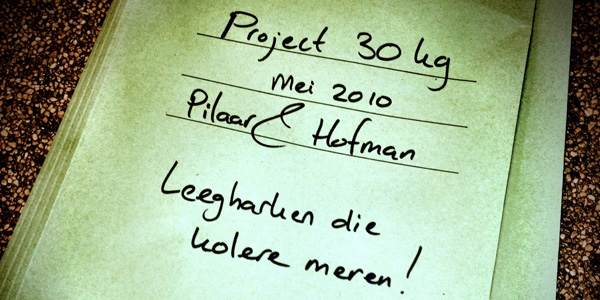 Project 30 kg
Mei 2010
Pilaar & Hofman
Leegharken die
kolere meren!